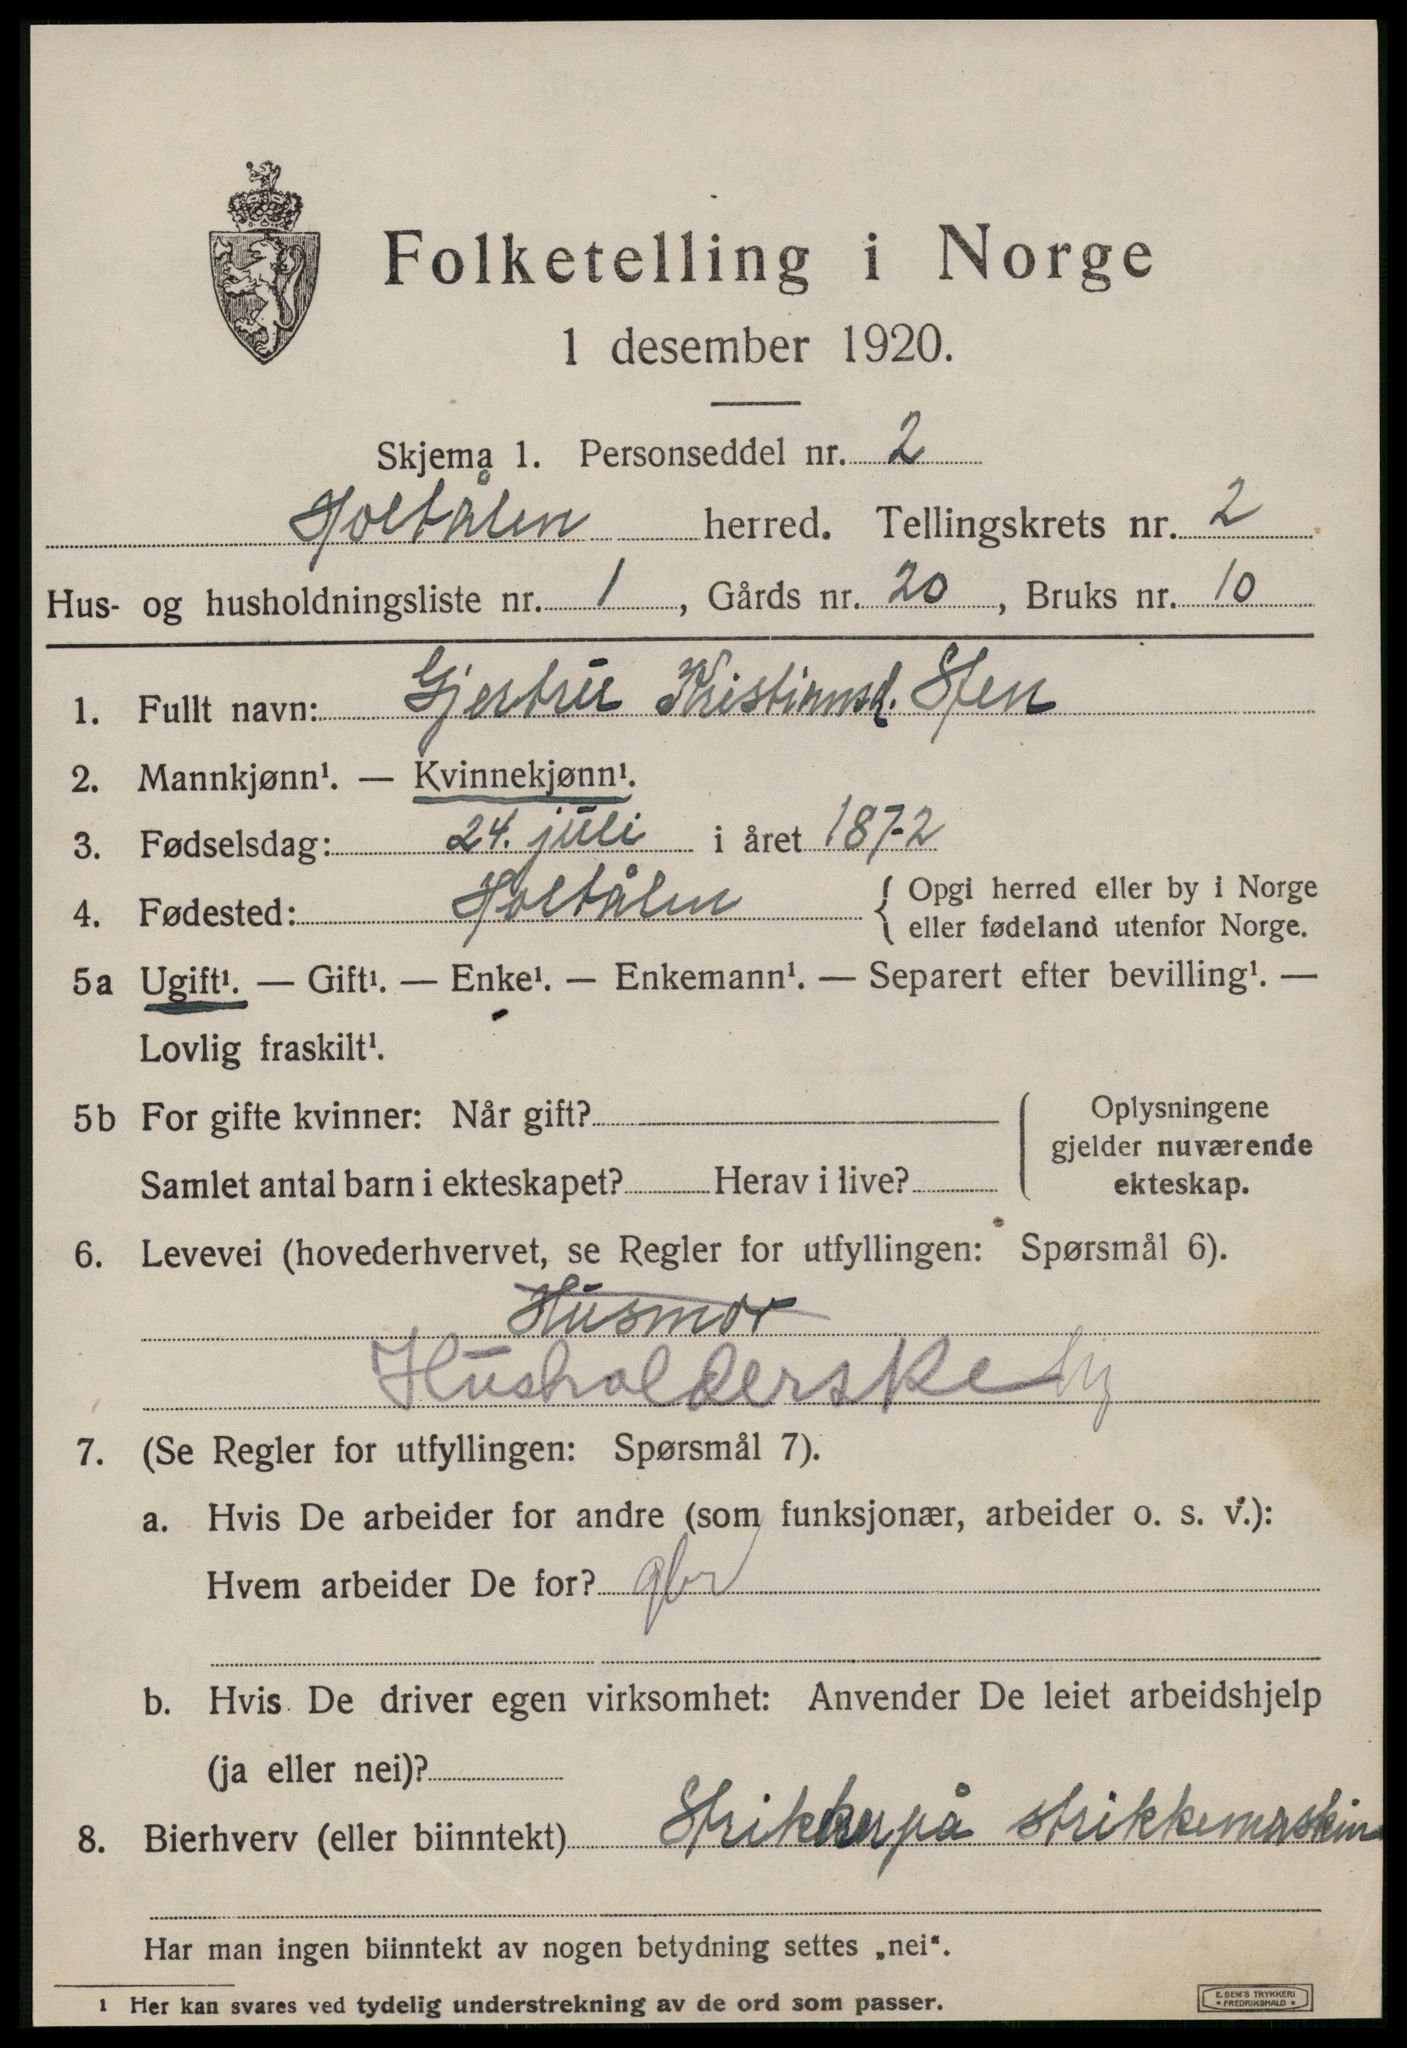 Folketelling i Norge
1 desember 1920.
Skjema 1. Personseddel nr. 2
Holtålen herred. Tellingskrets nr. 2
Hus- og husholdningsliste nr. 1, Gårds nr. 20, Bruks nr. 10
1. Fullt navn: Gjertru Kristiansd. Sten
2. Mannkjønn¹. — Kvinnekjønn¹.
3. Fødselsdag: 24. juli i året 1872
4. Fødested: Holtålen { Opgi herred eller by i Norge
eller fødeland utenfor Norge.
5a Ugift¹. — Gift¹. — Enke¹. — Enkemann¹. — Separert efter bevilling¹. —
Lovlig fraskilt¹.
5b For gifte kvinner: Når gift?
Samlet antal barn i ekteskapet? Herav i live?
Oplysningene
gjelder nuværende
ekteskap.
6. Levevei (hovederhvervet, se Regler for utfyllingen: Spørsmål 6).
Husmor
Husholderske
7. (Se Regler for utfyllingen: Spørsmål 7).
a. Hvis De arbeider for andre (som funksjonær, arbeider o. s. v.):
Hvem arbeider De for? gbr
b. Hvis De driver egen virksomhet: Anvender De leiet arbeidshjelp
(ja eller nei)?
8. Bierhverv (eller biinntekt) Strikker på strikkemaskin
Har man ingen biinntekt av nogen betydning settes „nei“.
1 Her kan svares ved tydelig understrekning av de ord som passer.
E. SEM'S TRYKKERI
* FREDRIKSHALD *